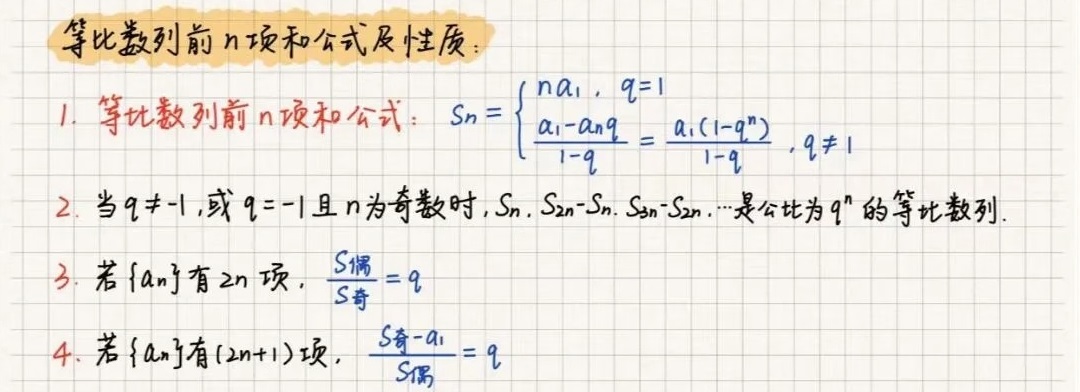 等比数列前n项和公式及性质：
1. 等比数列前n项和公式： Sn = { na₁， q=1
(a₁-aₙq)/(1-q) = a₁(1-qⁿ)/(1-q) ，q≠1
2. 当q≠-1，或q=-1且n为奇数时，Sn，S2n-Sn，S3n-S2n，…是公比为qⁿ的等比数列.
3. 若{an}有2n项， S偶/S奇 = q
4. 若{an}有(2n+1)项， (S奇-a₁)/S偶 = q